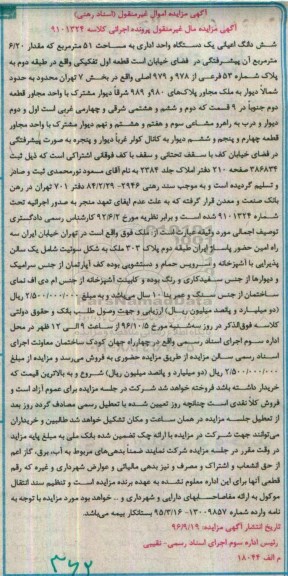 آگهی مزایده اموال غیرمنقول (اسناد رهنی)
آگهی مزایده مال غیرمنقول پرونده اجرائی کلاسه ۹۱۰۱۳۲۴
شش دانگ اعیانی یک دستگاه واحد اداری به مساحت ۵۱ مترمربع که مقدار ۶/۲۰
مترمربع آن پیشرفتگی در فضای خیابان است قطعه اول تفکیکی واقع در طبقه دوم به
پلاک شماره ۵۳ فرعی از ۹۷۸ و ۹۷۹ اصلی واقع در بخش ۷ تهران محدود به حدود
شمالاً دیوار به ملک مجاور پلاک‌های ۹۸۰ و ۹۸۹ شرقاً دیوار مشترک با واحد مجاور قطعه
دوم جنوباً در ۹ قسمت که دوم و ششم و هشتمی شرقی و چهارمی غربی است اول و دوم
دیوار و درب به راهرو مشاعی سوم و هفتم و هشتم و نهم دیوار مشترک با واحد مجاور
قطعه چهارم و پنجم و ششم دیوار به کانال کولر غرباً دیوار و پنجره به صورت پیشرفتگی
در فضای خیابان کف با سقف تحتانی و سقف با کف فوقانی اشتراکی است که ذیل ثبت
۳۸۶۸۳۴ صفحه ۲۱۰ دفتر املاک جلد ۲۳۸۴ به نام آقای مسعود نورمحمدی ثبت و صادر
و تسلیم گردیده است و به موجب سند رهنی ۲۹۴۶-۸۴/۲/۲۹ دفتر ۷۰۱ تهران در رهن
بانک صنعت و معدن قرار گرفته که به علت عدم ایفای تعهد منجر به صدور اجرائیه تحت
شماره ۹۱۰۱۳۲۴ شده است و برابر نظریه مورخ ۹۲/۶/۲ کارشناس رسمی دادگستری
توصیف اجمالی مورد وثیقه عبارت است از ملک فوق واقع است در تهران خیابان ایران سه
راه امین حضور پاساژ ایران طبقه دوم پلاک ۳۰۳ ملک به شکل سوئیت شامل یک سالن
پذیرایی با آشپزخانه و سرویس حمام و دستشویی بوده کف آپارتمان از جنس سرامیک
و دیوارها از جنس سفیدکاری و رنگ بوده و کابینت آشپزخانه از جنس ام دی اف نمای
ساختمان از جنس سنگ و عمر بنا ۱۰ سال می‌باشد و به مبلغ ۲/۵۰۰/۰۰۰/۰۰۰ ریال
(دو میلیارد و پانصد میلیون ریال) ارزیابی و جهت وصول طلب بانک و حقوق دولتی
کلاسه فوق‌الذکر در روز سه‌شنبه مورخ ۹۶/۱۰/۵ از ساعت ۹ الی ۱۲ ظهر در محل
اداره سوم اجرای اسناد رسمی واقع در چهارراه جهان کودک ساختمان معاونت اجرای
اسناد رسمی سالن مزایده از طریق مزایده حضوری به فروش می‌رسد و مزایده از مبلغ
۲/۵۰۰/۰۰۰/۰۰۰ ریال (دو میلیارد و پانصد میلیون ریال) شروع و به بالاترین قیمت که
خریدار داشته باشد فروخته خواهد شد شرکت در جلسه مزایده برای عموم آزاد است و
فروش کلاً نقدی است چنانچه روز تعیین شده با تعطیل رسمی مصادف گردد روز بعد
از تعطیل جلسه مزایده در همان ساعت و مکان تشکیل خواهد شد طالبین و خریداران
می‌توانند جهت شرکت در مزایده با ارائه چک تضمین شده بانک ملی به مبلغ پایه مزاید
در وقت مقرر در جلسه مزایده شرکت نمایند ضمناً بدهی‌های مربوط به آب، برق، گاز اعم
از حق انشعاب و اشتراک و مصرف و نیز بدهی مالیاتی و عوارض شهرداری و غیره که رقم
قطعی آنها برای این اداره معلوم نشده به عهده برنده مزایده است و تنظیم سند انتقال
موکول به ارائه مفاصاحسابهای دارایی و شهرداری و .. خواهد بود مورد مزایده با توجه به
نامه وارده شماره ۱۳۰۰۹۸۵۷-۹۵/۳/۱۶ بستانکار بیمه می‌باشد.
تاریخ انتشار آگهی مزایده: ۹۶/۹/۱۹
رئیس اداره سوم اجرای اسناد رسمی- نقیبی
م الف ۱۸۰۴۴
۳۶۲